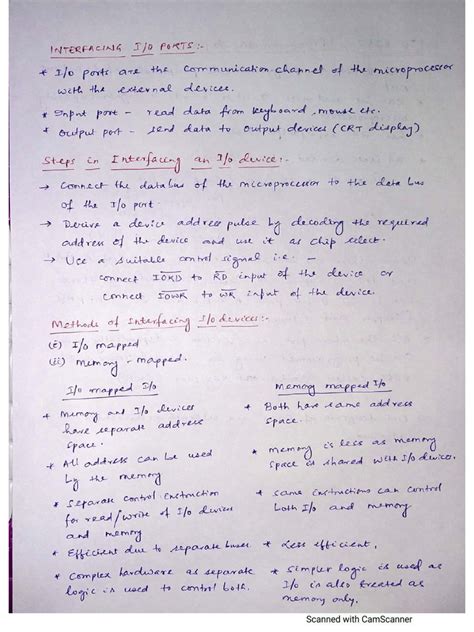 INTERFACING I/O PORTS:-
* I/O ports are the communication channel of the microprocessor
with the external devices.
* Input port - read data from keyboard, mouse etc.
* Output port - send data to output devices (CRT display)
Steps in Interfacing an I/O device:-
→ Connect the databus of the microprocessor to the data bus
of the I/O port.
→ Derive a device address pulse by decoding the required
address of the device and use it as chip select.
→ Use a suitable control signal i.e. -
connect I̅O̅R̅D̅ to R̅D̅ input of the device or
connect I̅O̅W̅R̅ to W̅R̅ input of the device.
Methods of Interfacing I/O devices:-
(i) I/O mapped
(ii) memory - mapped.
I/O mapped I/O
* Memory and I/O devices
have separate address
space.
* All address can be used
by the memory
* Separate control instruction
for read/write of I/O devices
and memory
* Efficient due to separate buses
* Complex hardware as separate
logic is used to control both.
Memory mapped I/O
* Both have same address
space.
* memory is less as memory
space is shared with I/O devices.
* same instructions can control
both I/o and memory
* Less efficient.
* Simpler logic is used as
I/o is also treated as
memory only.
Scanned with CamScanner